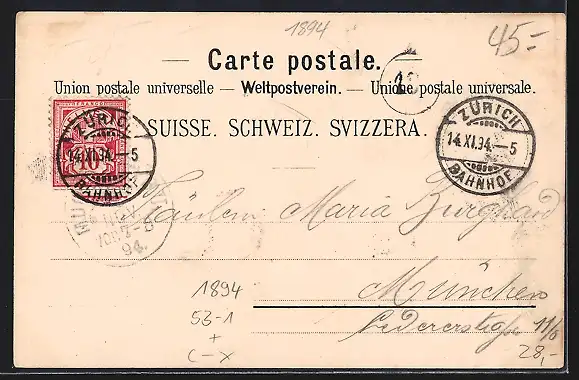 1894
45.-
Carte postale.
Union postale universelle. — Weltpostverein. — Unione postale universale.
SUISSE. SCHWEIZ. SVIZZERA.
FRANCO
10
ZÜRICH
14.XI.94.–5
BAHNHOF
ZÜRICH
14.XI.94.–5
BAHNHOF
94.
Fräulein Maria Burghard
München
Ledererstraße 11/0
1894
53-1
+
C-X
28,-